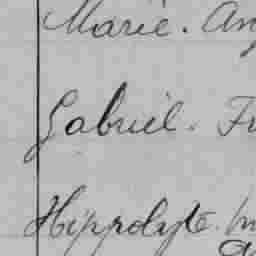 Marie. An
Gabriel. Fr
Hippolyte.